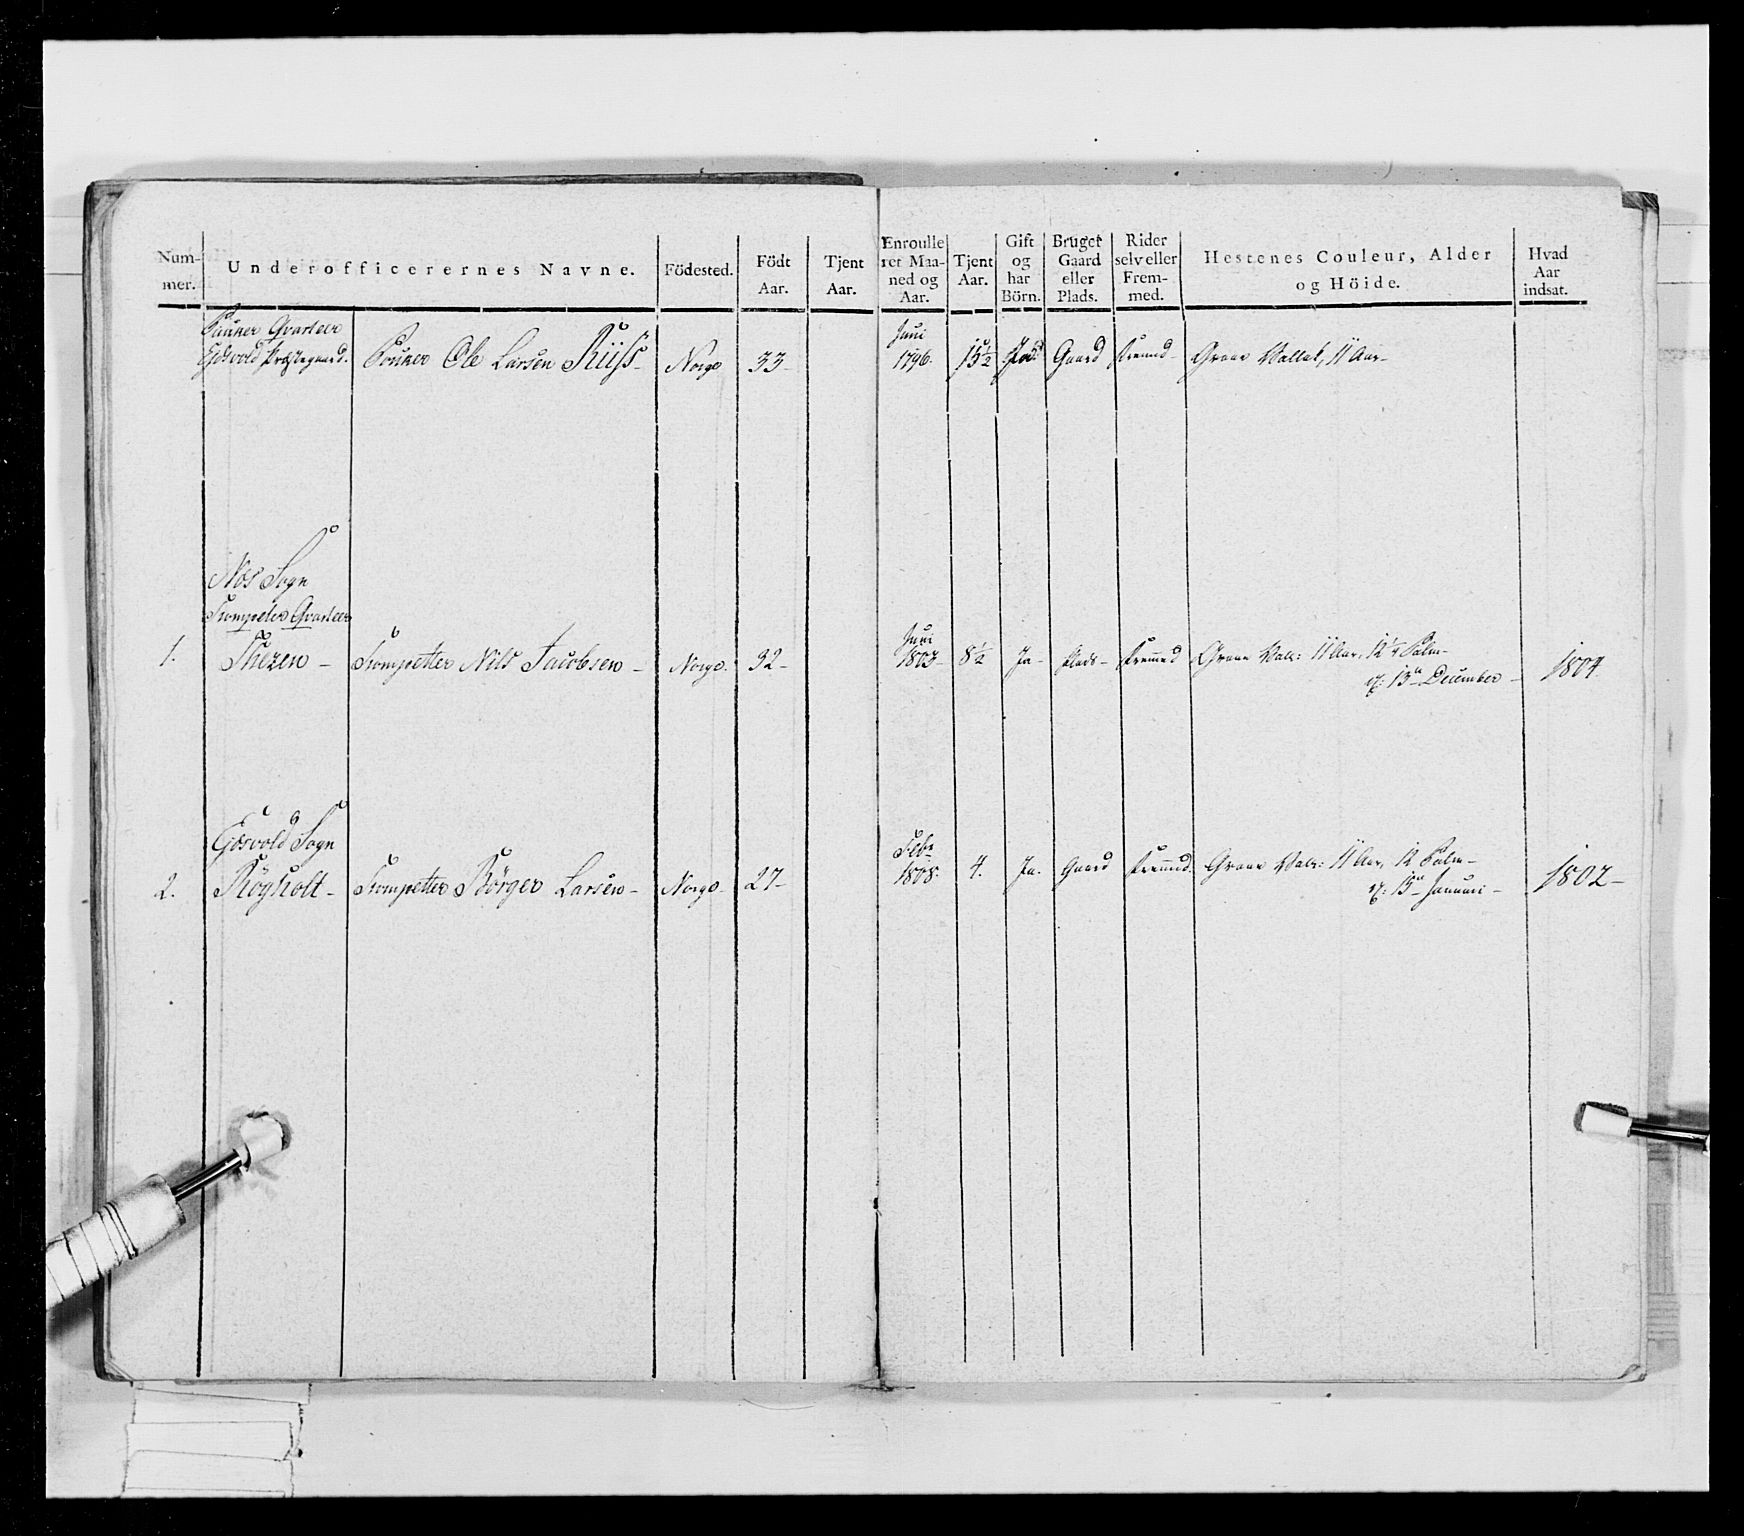 Num-
mer.
Underofficerernes Navne.
Födested.
Födt
Aar.
Tjent
Aar.
Enroulle
ret Maa-
ned og
Aar.
Tjent
Aar.
Gift
og
har
Börn.
Bruget
Gaard
eller
Plads.
Rider
selv eller
Frem-
med.
Hestenes Couleur, Alder
og Höide.
Hvad
Aar
indsat.
Pauker Qvarteer
Eidsvold Præstegaard. Pauker Ole Larsen Riiss - Norge 33 - Juni 1796. 15½ Gaard Fremd - Graae Vallak, 11 Aar -
Næs Sogn
Trompeter Qvarteer
1. Thezen - Trompetter Nils Jacobsen - Norge. 32 - Juni 1803 - 8½ Ja - Plads - Fremed Graae Val: 11 Aar, 12¼ Palm -
d: 13de December - 1804.
Edsvold Sogn
2. Röyholt - Trompetter Börger Larsen - Norge - 27 - Febr 1808. 4. Ja. Gaard Fremd. Graae Val: 11 Aar, 12 Palm -
d: 13de Januari - 1802 -